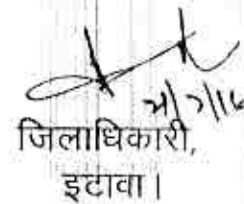 जिलाधिकारी,
इटावा।